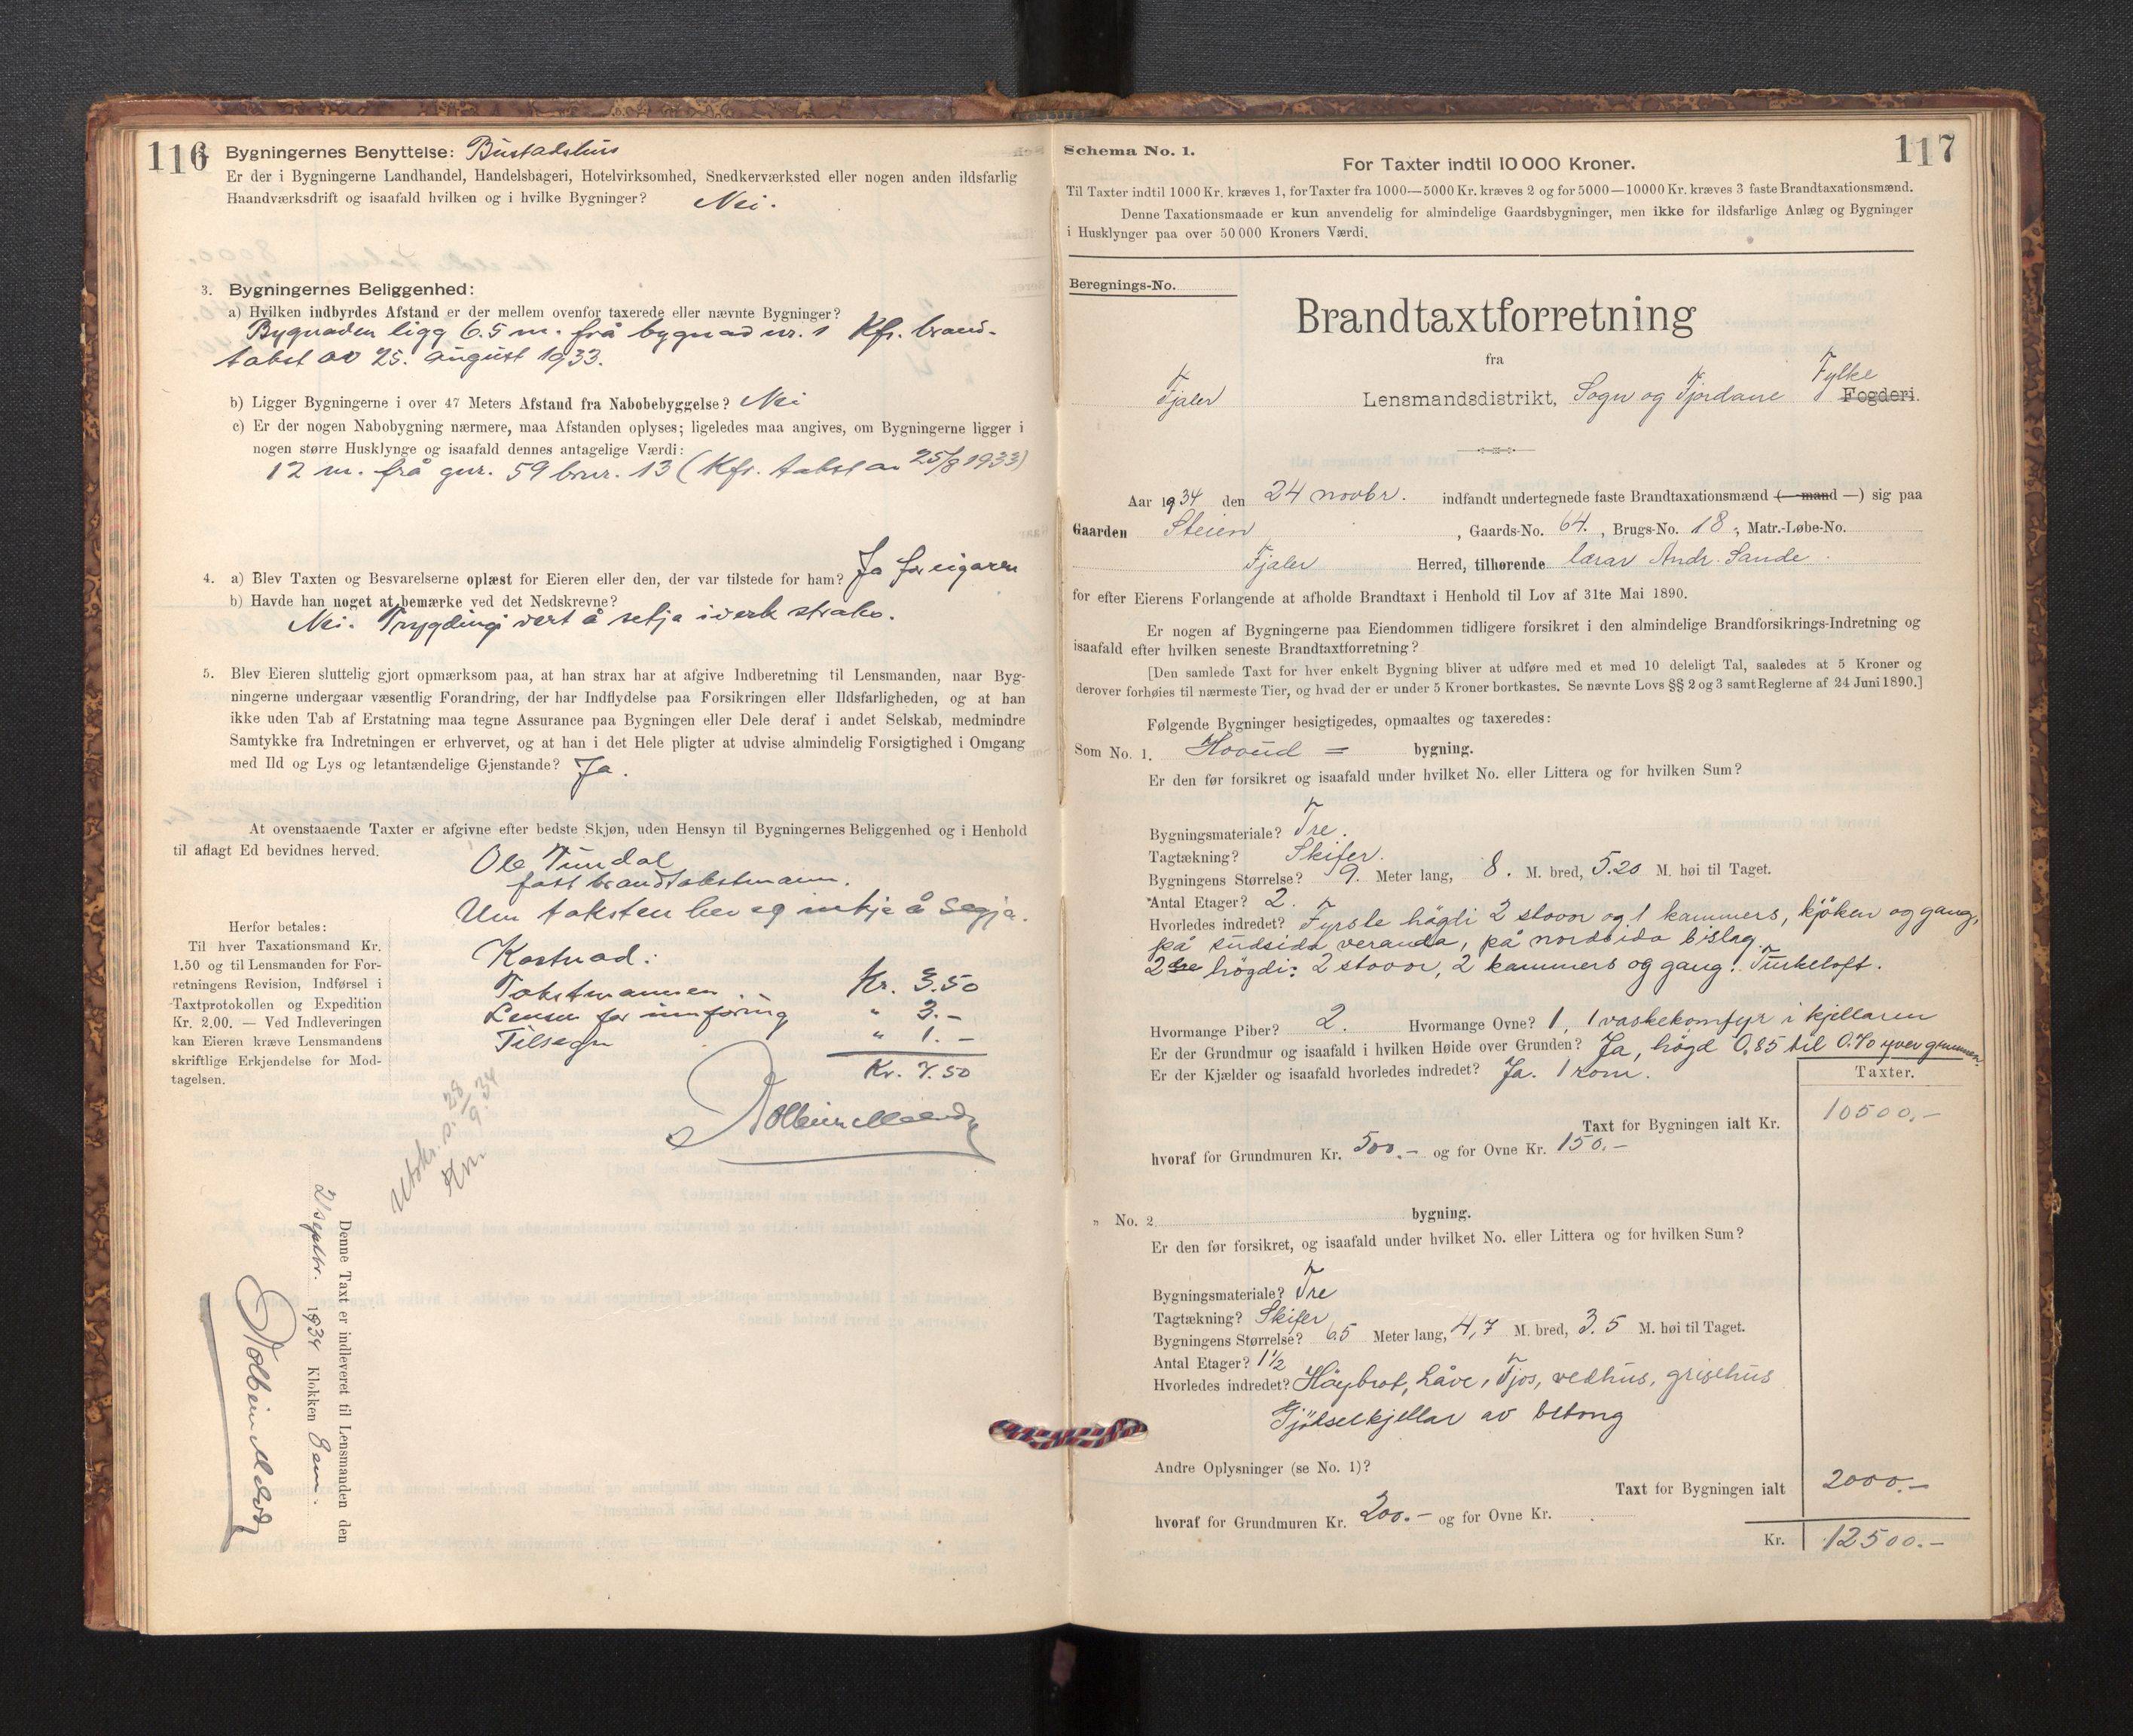 116
Bygningernes Benyttelse: Bustadshus
Er der i Bygningerne Landhandel, Handelsbageri, Hotelvirksomhed, Snedkerværksted eller nogen anden ildsfarlig
Haandværksdrift og isaafald hvilken og i hvilke Bygninger? Nei.
3. Bygningernes Beliggenhed:
a) Hvilken indbyrdes Afstand er der mellem ovenfor taxerede eller nævnte Bygninger?
Bygnaden ligg 6.5 m. frå bygnad nr. 1 Kfr. brand-
takst av 25. august 1933.
b) Ligger Bygningerne i over 47 Meters Afstand fra Nabobebyggelse? Nei
c) Er der nogen Nabobygning nærmere, maa Afstanden oplyses; ligeledes maa angives, om Bygningerne ligger i
nogen større Husklynge og isaafald dennes antagelige Værdi:
12 m. frå gnr. 59 bnr. 13 (Kfr. takst av 25/8 1933)
4. a) Blev Taxten og Besvarelserne oplæst for Eieren eller den, der var tilstede for ham? Ja for eigaren
b) Havde han noget at bemærke ved det Nedskrevne?
Nei. Trygdingi vert å setja i verk straks.
5. Blev Eieren sluttelig gjort opmærksom paa, at han strax har at afgive Indberetning til Lensmanden, naar Byg-
ningerne undergaar væsentlig Forandring, der har Indflydelse paa Forsikringen eller Ildsfarligheden, og at han
ikke uden Tab af Erstatning maa tegne Assurance paa Bygningen eller Dele deraf i andet Selskab, medmindre
Samtykke fra Indretningen er erhvervet, og at han i det Hele pligter at udvise almindelig Forsigtighed i Omgang
med Ild og Lys og letantændelige Gjenstande? Ja.
At ovenstaaende Taxter er afgivne efter bedste Skjøn, uden Hensyn til Bygningernes Beliggenhed og i Henhold
til aflagt Ed bevidnes herved.
Ole Tundal
fast brandtakstmann.
Um taksten hev eg inkje å segja.
Herfor betales:
Til hver Taxationsmand Kr.
1.50 og til Lensmanden for For-
retningens Revision, Indførsel i
Taxtprotokollen og Expedition
Kr. 2.00. — Ved Indleveringen
kan Eieren kræve Lensmandens
skriftlige Erkjendelse for Mod-
tagelsen.
Kostnad:
Takstmannen Kr. 3.50
Lensm for innføring " 3.-
Tilsegn " 1.-
Kr. 7.50
Utskr. s. 28/9.34
Denne Taxt er indleveret til Lensmanden den
2/septbr. 1934 Klokken 8 em.
117
Schema No. 1.
For Taxter indtil 10 000 Kroner.
Til Taxter indtil 1000 Kr. kræves 1, for Taxter fra 1000—5000 Kr. kræves 2 og for 5000—10000 Kr. kræves 3 faste Brandtaxationsmænd.
Denne Taxationsmaade er kun anvendelig for almindelige Gaardsbygninger, men ikke for ildsfarlige Anlæg og Bygninger
i Husklynger paa over 50 000 Kroners Værdi.
Beregnings-No.
Brandtaxtforretning
fra
Fjaler Lensmandsdistrikt, Sogn og Fjordane Fylke Fogderi.
Aar 1934 den 24 novbr. indfandt undertegnede faste Brandtaxationsmænd (— mand —) sig paa
Gaarden Steien, Gaards-No. 64., Brugs-No. 18, Matr.-Løbe-No.
Fjaler Herred, tilhørende lærar Andr. Sande.
for efter Eierens Forlangende at afholde Brandtaxt i Henhold til Lov af 31te Mai 1890.
Er nogen af Bygningerne paa Eiendommen tidligere forsikret i den almindelige Brandforsikrings-Indretning og
isaafald efter hvilken seneste Brandtaxtforretning?
[Den samlede Taxt for hver enkelt Bygning bliver at udføre med et med 10 deleligt Tal, saaledes at 5 Kroner og
derover forhøies til nærmeste Tier, og hvad der er under 5 Kroner bortkastes. Se nævnte Lovs §§ 2 og 3 samt Reglerne af 24 Juni 1890.]
Følgende Bygninger besigtigedes, opmaaltes og taxeredes:
Som No. 1. Hovud = bygning.
Er den før forsikret og isaafald under hvilket No. eller Littera og for hvilken Sum?
Bygningsmateriale? Tre.
Tagtækning? Skifer.
Bygningens Størrelse? 9. Meter lang, 8. M. bred, 5.20 M. høi til Taget.
Antal Etager? 2.
Hvorledes indredet? Fyrste högdi 2 stovor og 1 kammers, kjöken og gang,
på sudsida veranda, på nordsida bislag.
2dre högdi: 2 stovor, 2 kammers og gang. Turkeloft.
Hvormange Piber? 2. Hvormange Ovne? 1, 1 vaskekomfyr i kjellaren
Er der Grundmur og isaafald i hvilken Høide over Grunden? Ja, högd 0,85 til 0.70 yver grunnen.
Er der Kjælder og isaafald hvorledes indredet? Ja. 1 rom.
Taxter.
Taxt for Bygningen ialt Kr. 10500.-
hvoraf for Grundmuren Kr. 500.- og for Ovne Kr. 150.-
„ No. 2 bygning.
Er den før forsikret, og isaafald under hvilket No. eller Littera og for hvilken Sum?
Bygningsmateriale? Tre
Tagtækning? Skifer
Bygningens Størrelse? 6.5 Meter lang, 4,7 M. bred, 3.5 M. høi til Taget.
Antal Etager? 1½
Hvorledes indredet? Höybrot, Låve, Fjos, vedhus, grisehus
Gjödselkjellar av betong
Andre Oplysninger (se No. 1)?
Taxt for Bygningen ialt 2000.-
hvoraf for Grundmuren Kr. 200.- og for Ovne Kr.
Kr. 12500.-